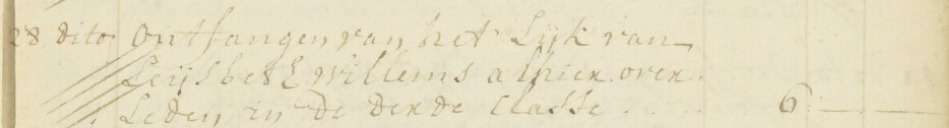 28 dito ontfangen van het Lijk van
Leijsbet Willems alhier over
Leden in de derde Classe . . . 6:—